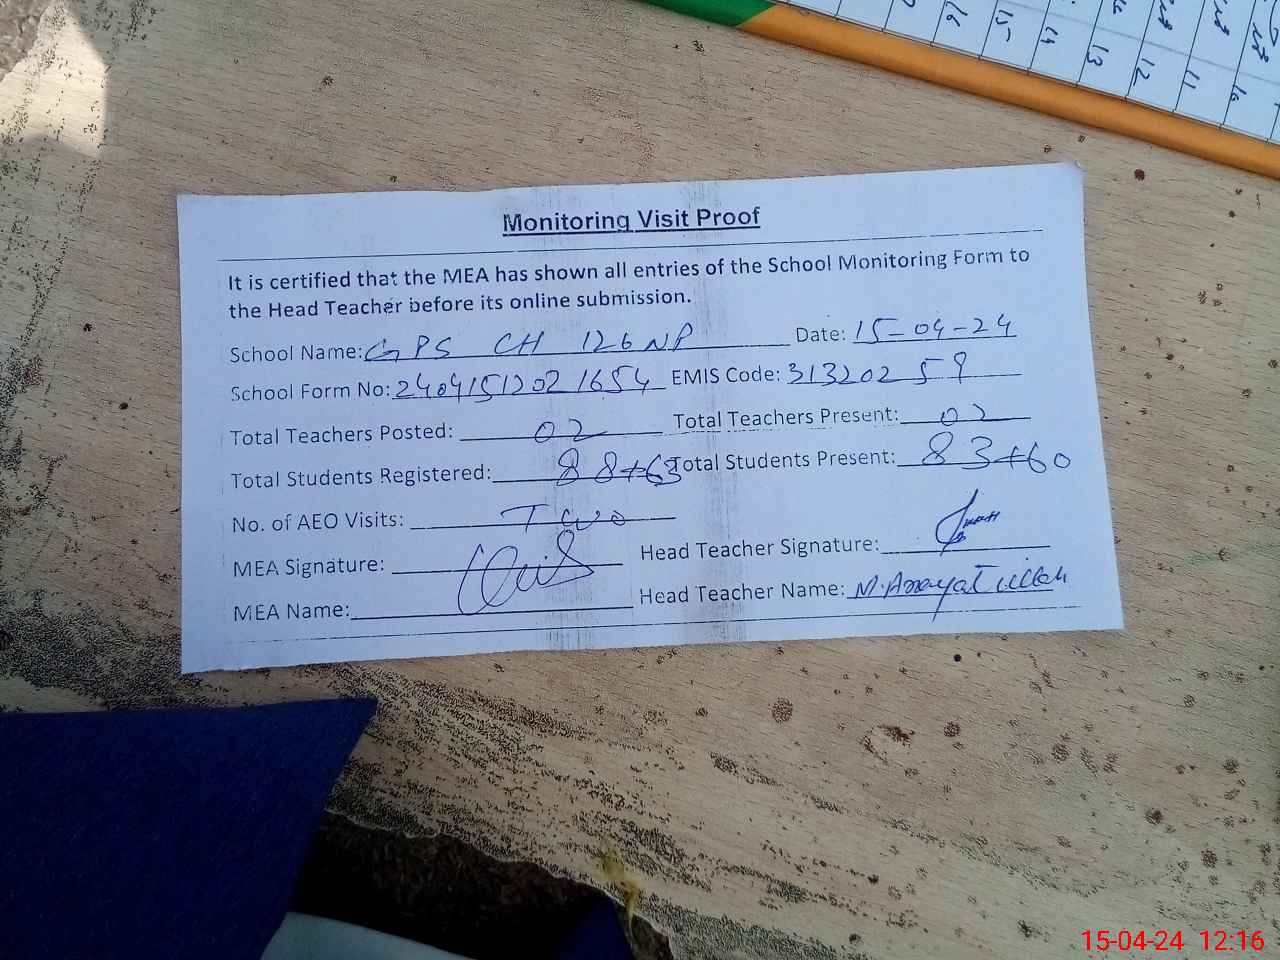 16 15 14 13 12 11 10
Monitoring Visit Proof
It is certified that the MEA has shown all entries of the School Monitoring Form to
the Head Teacher before its online submission.
School Name: GPS CH 126 NP Date: 15-04-24
School Form No: 2404151202 1654 EMIS Code: 31320259
Total Teachers Posted: 02 Total Teachers Present: 02
Total Students Registered: 88+63 Total Students Present: 83+60
No. of AEO Visits: Two
MEA Signature: Head Teacher Signature:
MEA Name: Head Teacher Name: M.
15-04-24 12:16